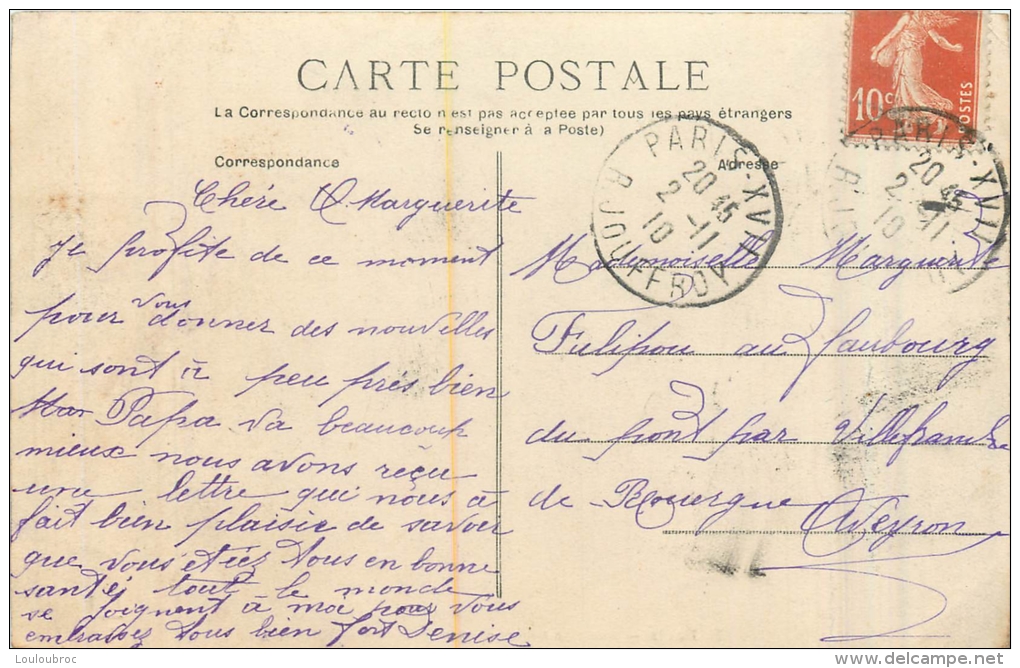 CARTE POSTALE
La Correspondance au recto n'est pas acceptée par tous les pays étrangers
Se renseigner à la Poste)
Correspondance
Adresse
10c
POSTES
PARIS-XVII
R JOUFFROY
20 45
2 -11
10
PARIS-XVII
20 45
2 -11
10
Chére Marguerite
Je profite de ce moment
pour vous donner des nouvelles
qui sont à peu près bien
Papa va beaucoup
mieux nous avons reçu
une lettre qui nous à
fait bien plaisir de savoir
que vous étiez tous en bonne
santé, tout le monde
se joignent à moi pour vous
embrassez tous bien fort Denise
Mademoiselle Marguerite
Fulipou au faubourg
du pont par Villefranche
de Rouergue
Aveyron
Louloubroc
delcampe.net